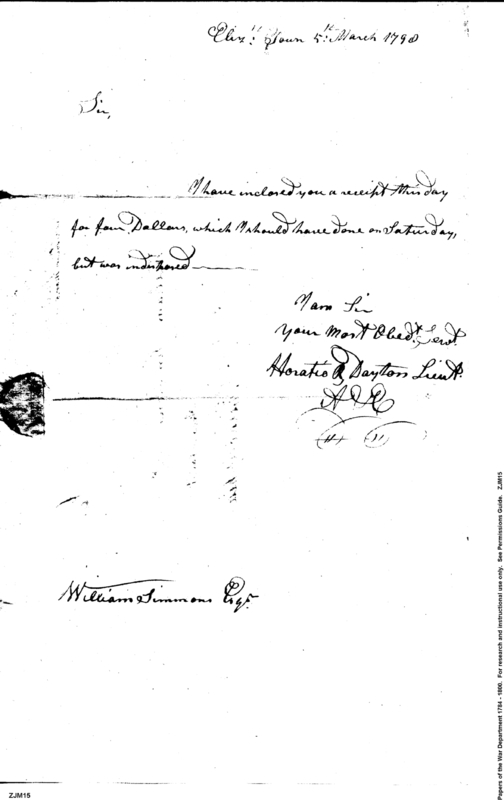 Eliz.th Town 5th March 1798
Sir,
I have inclosed you a receipt this day
for four Dollars, which I should have done on Saturday,
but was indisposed
I am Sir
Your Most Obedt. Servt.
Horatio R Dayton Lieut.
William Simmons Esqr.
ZJM15
Papers of the War Department 1784 - 1800. For research and instructional use only. See Permissions Guide. ZJM15